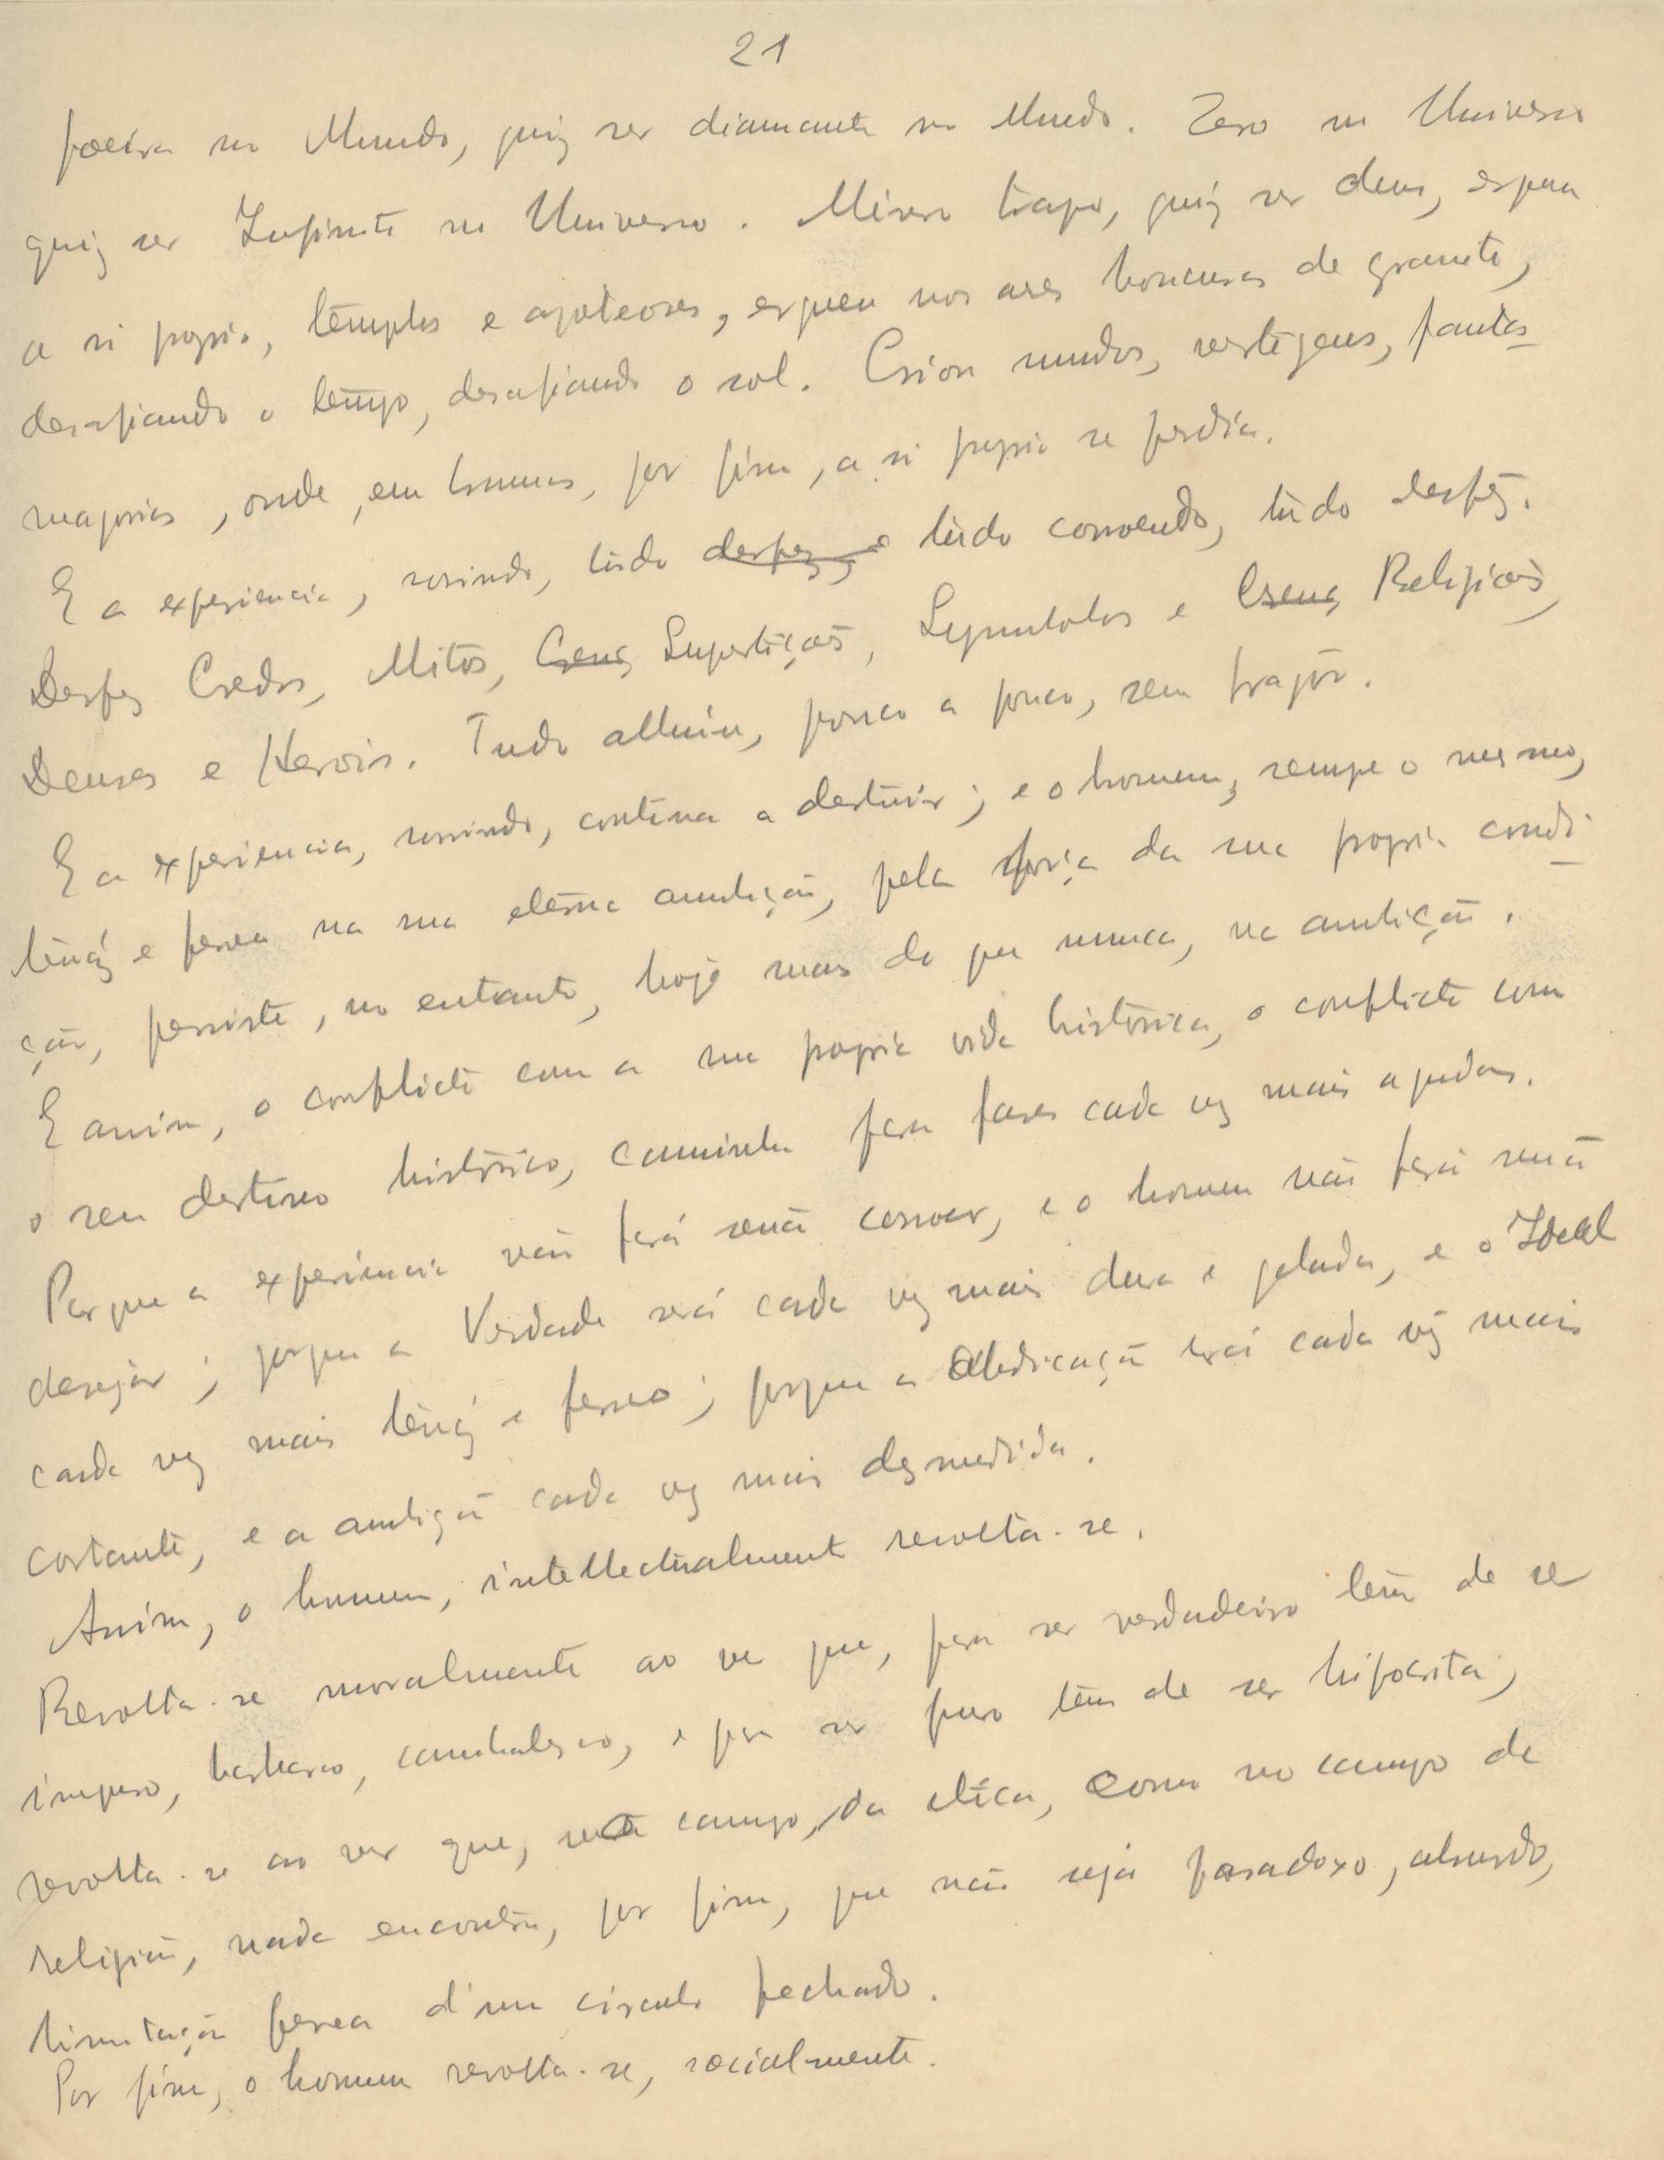 21
poeira no Mundo, quiz ser diamante no Mundo. Zero no Universo
quiz ser Infinito no Universo. Misero trapo, quiz ser deus, ergueu
a si proprio, templos e apoteoses, ergueu nos ares de granito,
desafiando o tempo, desafiando o sol. Criou mundos, vertigens, fantas-
magorias, onde, em brumas, por fim, a si proprio se perdia.
E a experiencia, sorrindo, tudo desfez, e tudo corroendo, tudo desfez.
Desfez Credos, Mitos, Crenç Superstições, Symbolos e Crenç Religiões,
Deuses e Herois. Tudo alluiu, pouco a pouco, sem fragor.
E a experiencia, sorrindo, continua a destruir; e o homem, sempre o mesmo,
tenáz e ferrea na sua eterna ambição, pela força da sua propria condi-
ção, persiste, no entanto, hoje mais do que nunca, na ambição.
E assim, o conflicto com a sua propria vida histórica, o conflicto com
o seu destino histórico, caminha para fases cada vez mais agudas.
Porque a experiencia não fará senão corroer, e o homem não fará senão
desejar; porque a Verdade será cada vez mais dura e gelada, e o Ideal
cada vez mais tenáz e ferreo; porque a Abdicação será cada vez mais
cortante, e a ambição cada vez mais desmedida.
Assim, o homem, intellectualmente revolta-se.
Revolta-se moralmente ao ver que, para ser verdadeiro tem de se
impuro, barbaro, canibalesco, e para ser puro tem de ser hipocrita;
revolta-se ao ver que, no campo, da etica, como no campo de
religião, nada encontra, por fim, que não seja paradoxo, absurdo,
limitação ferrea d'um circulo fechado.
Por fim, o homem revolta-se, socialmente.